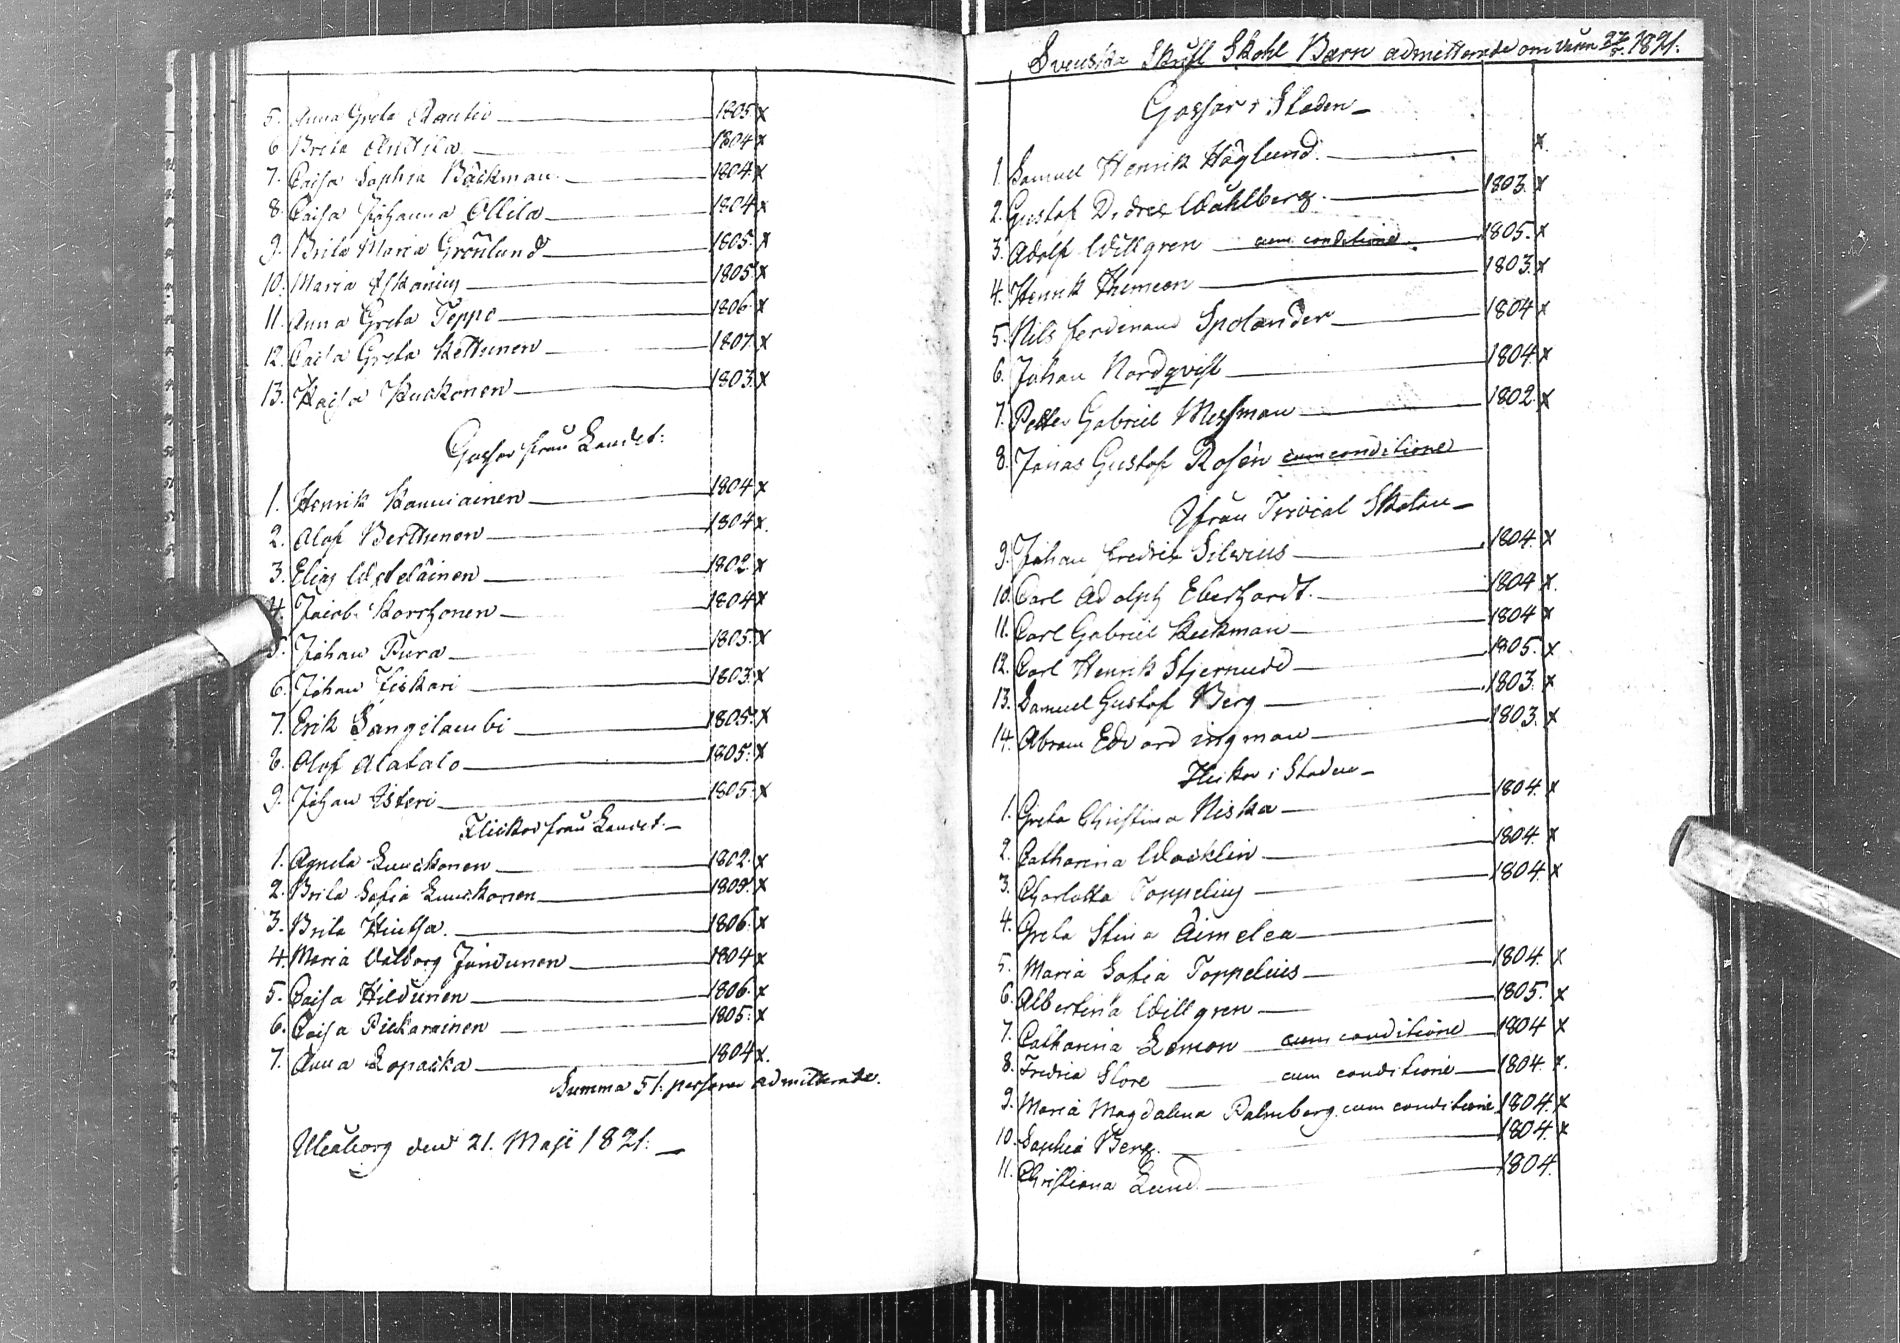 5. Anna Greta Rautio 1805. x
6 Breta Anttila 1804 x
7. Caisa Sophia Bäckman. 1804 x
8. Caisa Johanna Ollila 1804 x
9. Brita Maria Grönlund 1805. x
10. Maria Askanius 1805. x
11. Anna Greta Teppo 1806. x
12. Caisa Greta Kettunen 1807. x
13. Kaisa Kuckonen 1803. x
Gossar från Landet:
1. Henrik Kauniainen 1804 x
2. Olof Berttunen 1804 x.
3. Elias Westeläinen 1802. x
4. Jacob Korrhonen 1804 x
5. Johan Pura 1805. x
6. Johan Fiskari 1803. x
7. Erik Sangilambi 1805. x
8. Olof Alatalo 1805. x
9. Johan Isteri 1805. x
Flickor från Landet.
1. Agneta Luuckonen 1802. x
2. Brita Sofia Luuckonen 1805. x
3. Brita Hintsa. 1806. x
4. Maria Valborg Jundunen 1804 x
5. Caisa Hildunen 1806. x
6. Caisa Pickarainen 1805. x
7. Anna Lopacka 1804 x.
Summa 51: personer admitterade.
Uleåborg den 21. Maji 1821.
Svenska Skrift Skohl Barn admitterade om våren 27/5. 1821.
Gossar i Staden
1. Samuel Henrik Höglund. x
2. Gustaf Wahlberg. 1803. x
3. Adolf Willgren cum conditione. 1805. x
4. Henrik 1803. x
5. Nils Ferdinand Spolander 1804 x
6. Johan Nordqvist 1804 x
7. Petter Gabriel Messman 1802. x
8. Jonas Gustaf Rosén cum conditione
Ifrån Trivial Skolan
9. Johan Fredrik Silvius 1804. x
10. Carl Adolph Eberhardt. 1804 x.
11. Carl Gabriel Keckman 1804 x
12. Carl Henrik Stjerncedt 1805. x
13. Samuel Gustaf Berg 1803. x
14. Abram Edvard ingman 1803. x
Flickor i Staden
1. Greta Christina Niska 1804. x
2. Catharina Wacklin 1804. x
3. Charlotta Toppelius 1804. x
4. Greta Stina Äimelea
5. Maria Sofia Toppelius 1804. x
6. Albertina Willgren 1805. x
7. Catharina Lomon cum conditione 1804 x
8. Fredrica Store cum conditione 1804. x.
9. Maria Magdalena Palmberg. cum conditione 1804. x
10. Sophia Berg. 1804. x
11. Christiana Lund. 1804.